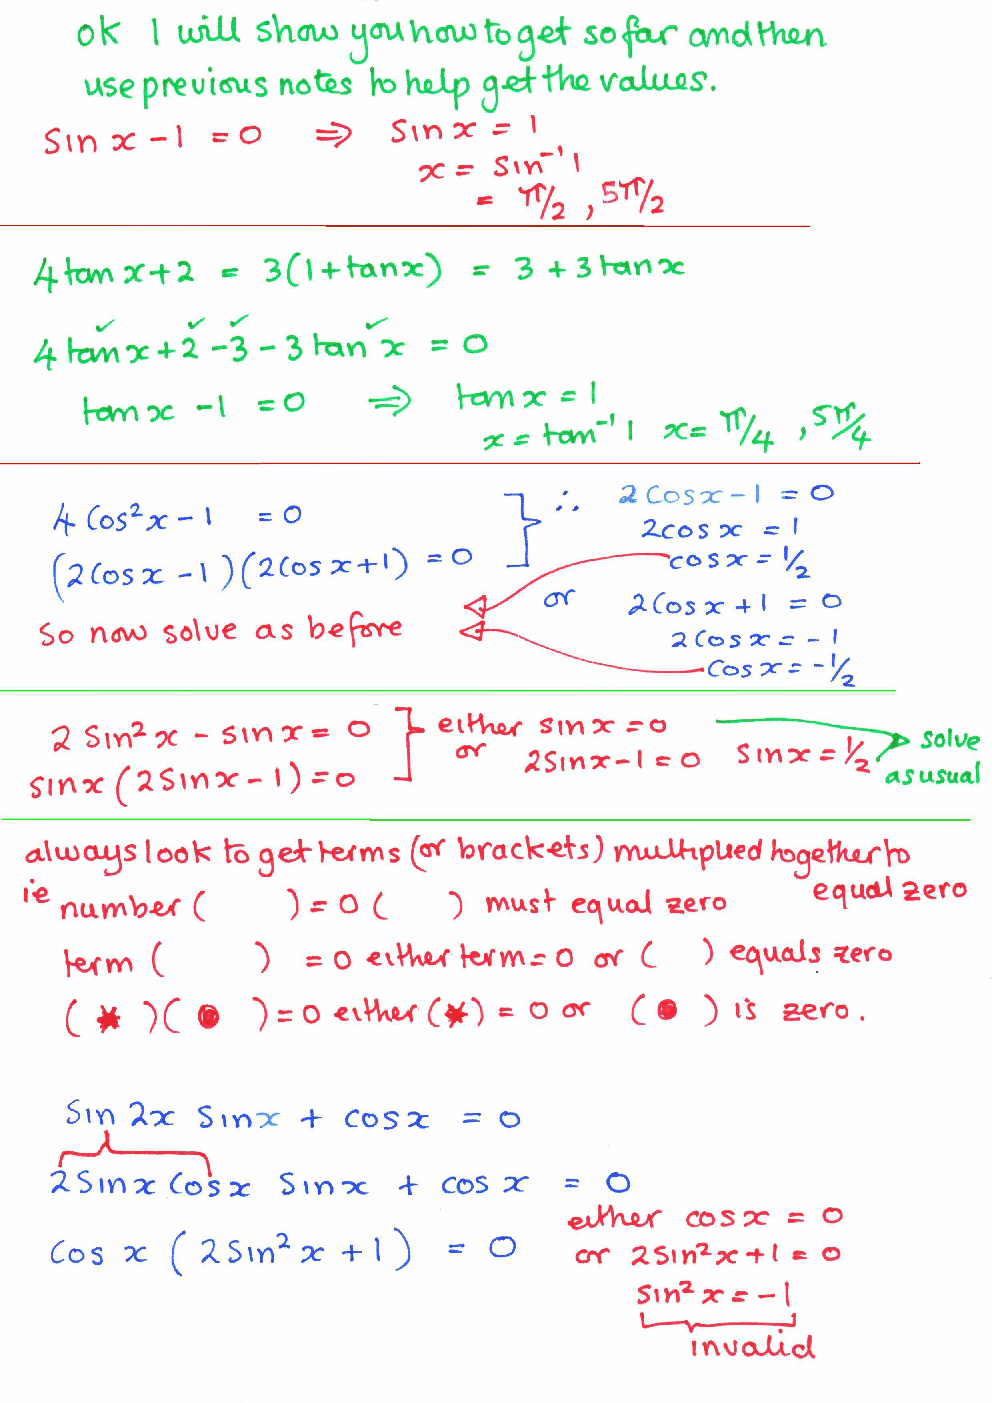 ok I will show you how to get so far and then
use previous notes to help get the values.
Sin x - 1 = 0 ⇒ Sin x = 1
x = Sin⁻¹ 1
= π/2 , 5π/2
4 tan x + 2 = 3(1 + tan x) = 3 + 3 tan x
✓ ✓ ✓ ✓
4 tan x + 2 - 3 - 3 tan x = 0
tan x - 1 = 0 ⇒ tan x = 1
x = tan⁻¹ 1 x = π/4 , 5π/4
4 Cos² x - 1 = 0 ∴ 2 Cos x - 1 = 0
2 cos x = 1
(2 Cos x - 1)(2 Cos x + 1) = 0 cos x = 1/2
or 2 Cos x + 1 = 0
So now solve as before 2 Cos x = - 1
Cos x = - 1/2
2 Sin² x - sin x = 0 either sin x = 0
sin x (2 Sin x - 1) = 0 or 2 Sin x - 1 = 0 Sin x = 1/2 solve
as usual
always look to get terms (or brackets) multiplied together to
equal zero
ie number ( ) = 0 ( ) must equal zero
term ( ) = 0 either term = 0 or ( ) equals zero
( * )( ● ) = 0 either (*) = 0 or ( ● ) is zero.
Sin 2x Sin x + cos x = 0
2 Sin x Cos x Sin x + cos x = 0
either cos x = 0
Cos x (2 Sin² x + 1) = 0 or 2 Sin² x + 1 = 0
Sin² x = - 1
invalid